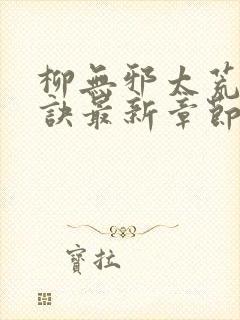 柳無邪太荒
訣最新章節
寶拉